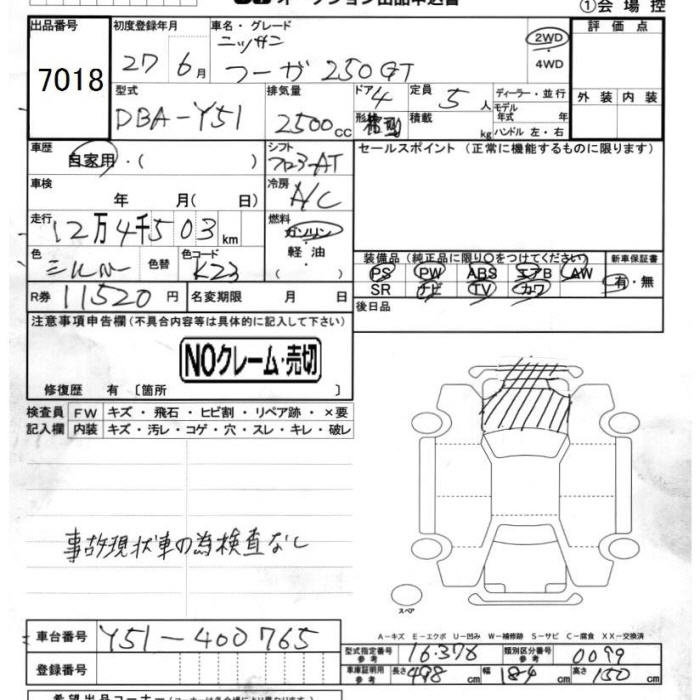 ①会場控
出品番号
7018
初度登録年月
27 6月
車名・グレード
ニッサン
フーガ 250GT
2WD
・
4WD
評価点
外装 内装
型式
DBA-Y51
排気量
2500cc
ドア 4
形状
定員 5人
積載 kg
ディーラー・並行
モデル年式 年
ハンドル 左・右
車歴
自家用・( )
シフト
フロア AT
セールスポイント (正常に機能するものに限ります)
車検
年 月( 日)
冷房
A/C
走行
12万4千503km
燃料
ガソリン
軽油
( )
色
シルバー
色替
色コード
K23
装備品 (純正品に限り○をつけてください)
PS PW ABS エアB AW
SR ナビ TV カワ
新車保証書
有・無
R券 11520円
名変期限 月 日
後日品
注意事項申告欄(不具合内容等は具体的に記入して下さい)
NOクレーム・売切
修復歴 有 〔箇所 〕
検査員記入欄
FW キズ・飛石・ヒビ割・リペア跡・×要
内装 キズ・汚レ・コゲ・穴・スレ・キレ・破レ
事故現状車の為検査なし
スペア
車台番号 Y51-400765
登録番号
A-キズ E-エクボ U-凹み W-補修跡 S-サビ C-腐食 XX-交換済
型式指定番号 参考 16378
類別区分番号 参考 0099
車庫証明用 参考 長さ 498cm 幅 184cm 高さ 150cm